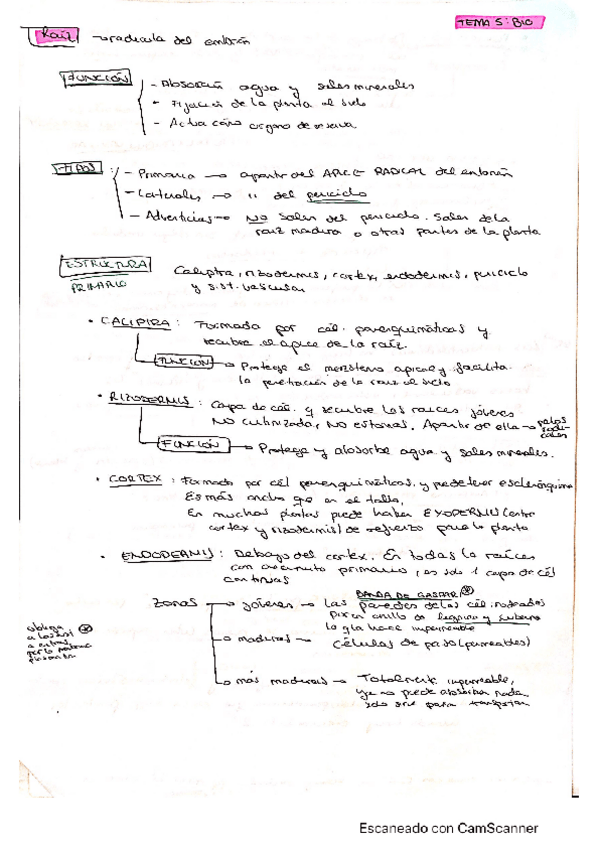 TEMA 5: BIO
Raíz → radícula del embrión
FUNCIÓN
- Absorción agua y sales minerales
- Fijación de la planta al suelo
- Actúa como órgano de reserva
TIPOS
- Primaria → a partir del APICE RADICAL del embrión
- Laterales → " del periciclo
- Adventicias → NO salen del periciclo. Salen de la
raíz madura o otras partes de la planta
ESTRUCTURA
PRIMARIO
Caliptra, rizodermis, cortex, endodermis, periciclo
y sist. vascular
• CALIPTRA: Formada por cél. parenquimáticas y
recubre el ápice de la raíz.
FUNCIÓN → Protege el meristemo apical y facilita
la penetración de la raíz al suelo
• RIZODERMIS: Capa de cél. y recubre las raíces jóvenes
NO cutinizada, NO estomas. A partir de ella → pelos
radicales
FUNCIÓN → Protege y absorbe agua y sales minerales.
• CORTEX: Formado por cél parenquimáticas, y puede tener esclerénquima
Es más ancho que en el tallo.
En muchas plantas puede haber EXODERMIS (entre
cortex y rizodermis) de refuerzo para la planta
• ENDODERMIS: Debajo del cortex. En todas la raíces
con crecimiento primario, es solo 1 capa de cél
continuas
BANDA DE CASPARI *
Zonas → jóvenes → Las paredes de las cél. rodeadas
por un anillo de lignina y suberina
lo que hace impermeable
→ maduras → Células de paso (permeables)
→ más maduras → Totalment. impermeable,
ya no puede absorber nada
solo sirve para transportar
obliga *
a las sust
a entrar
por la
Escaneado con CamScanner